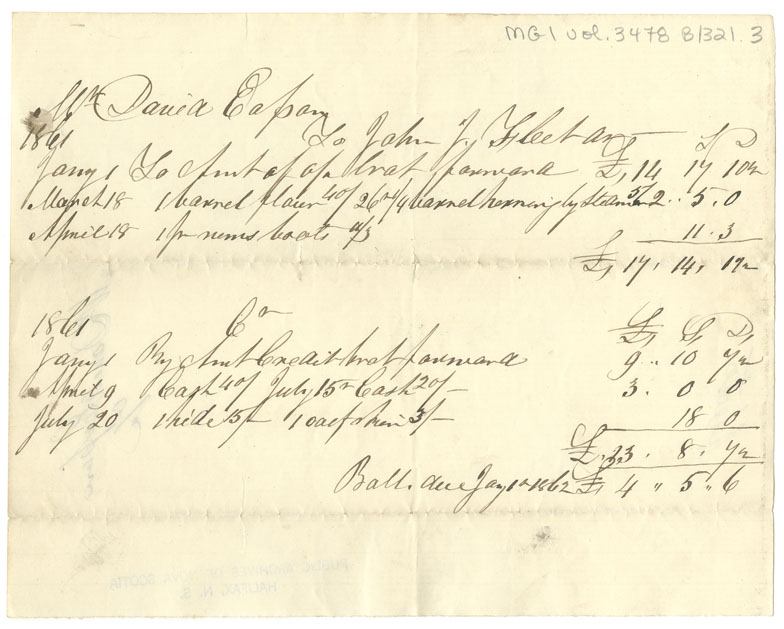 MG1 vol. 3478 B/321. 3
Mr David Eason
1861 To John J. Fleet Dr
£ S D
Jany 1 To Amt of op brat forward £ 14 17 10
March 18 1 barrel flour 40/ 26 1/4 barrel herring by Steam 5/ 2 .. 5. 0
April 18 1 pr mens boots 11/3 11. 3
£ 17, 14, 1
1861 Cr
£ S D
Jany 1 By Amt Credit brat forward 9 .. 10 7
April 9 Cash 40/ July 15 Cash 20/- 3. 0 0
July 20 1 hide 15/- 1 calfskin 3/- 18 0
£ 13. 8. 7
Ball. due Jany 1st 1862 £ 4 " 5 " 6
PUBLIC ARCHIVES OF NOVA SCOTIA
HALIFAX, N. S.